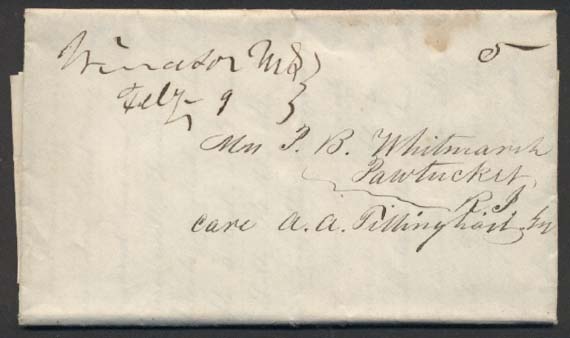 Windsor Ms 5
Feby 9
Mrs P. B. Whitmarsh
Pawtucket
R I
care A. A. Tillinghast Esq